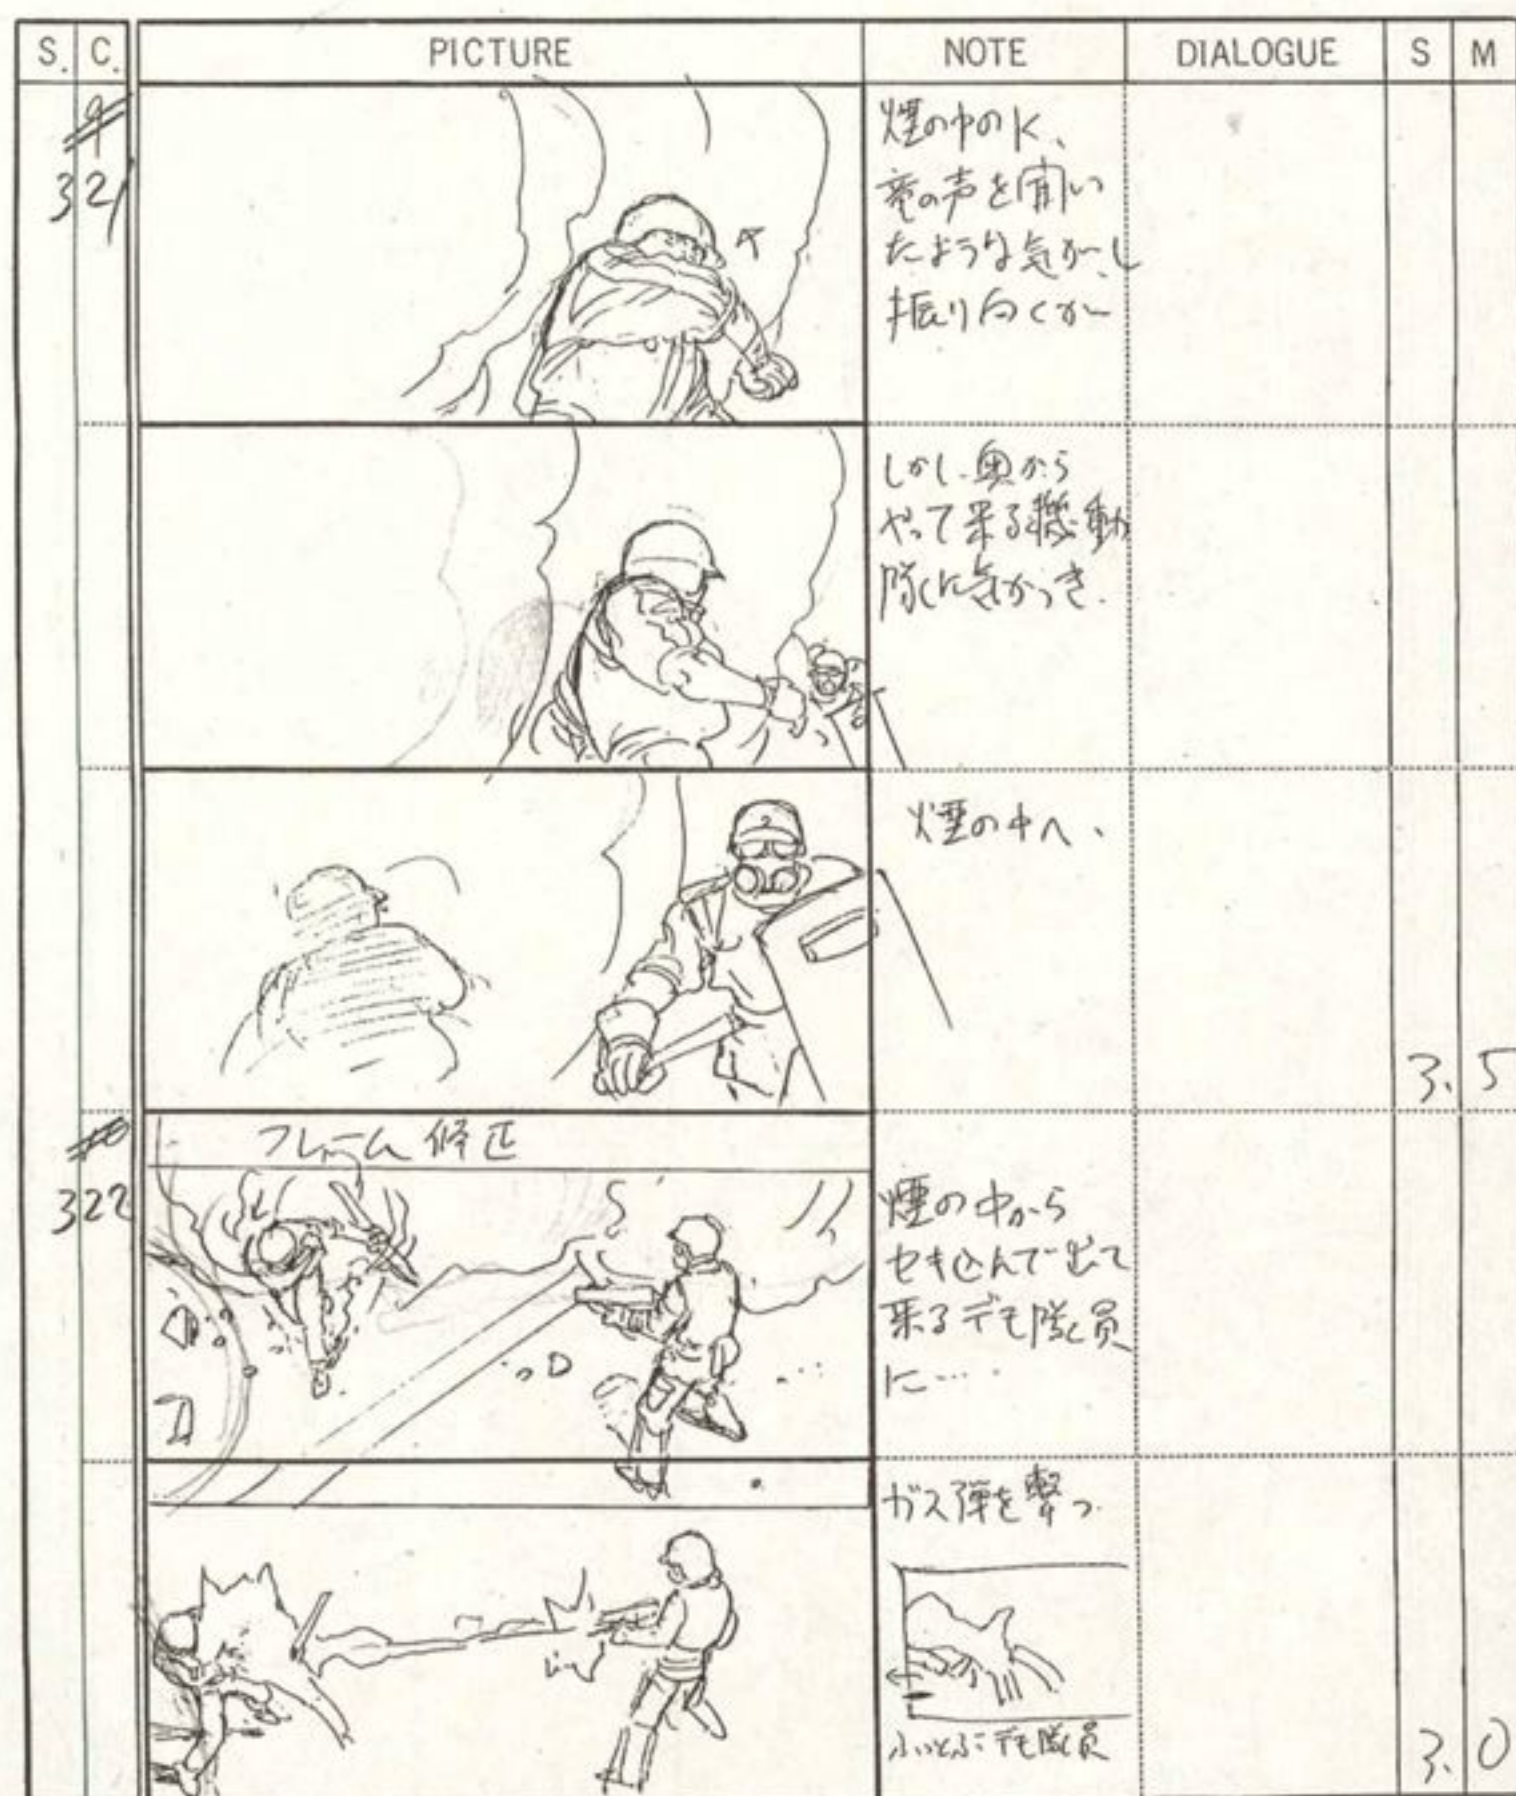 S. C. PICTURE NOTE DIALOGUE S M
9
321
煙の中のK、
竜の声を聞い
たような気がし
振り向くが
しかし、奥から
やって来る機動
隊に気がつき.
煙の中へ、
3.5
322
フレーム修正
煙の中から
セキ込んで出て
来るデモ隊員
に……
ガス弾を撃つ.
ふっとぶデモ隊員
3.0